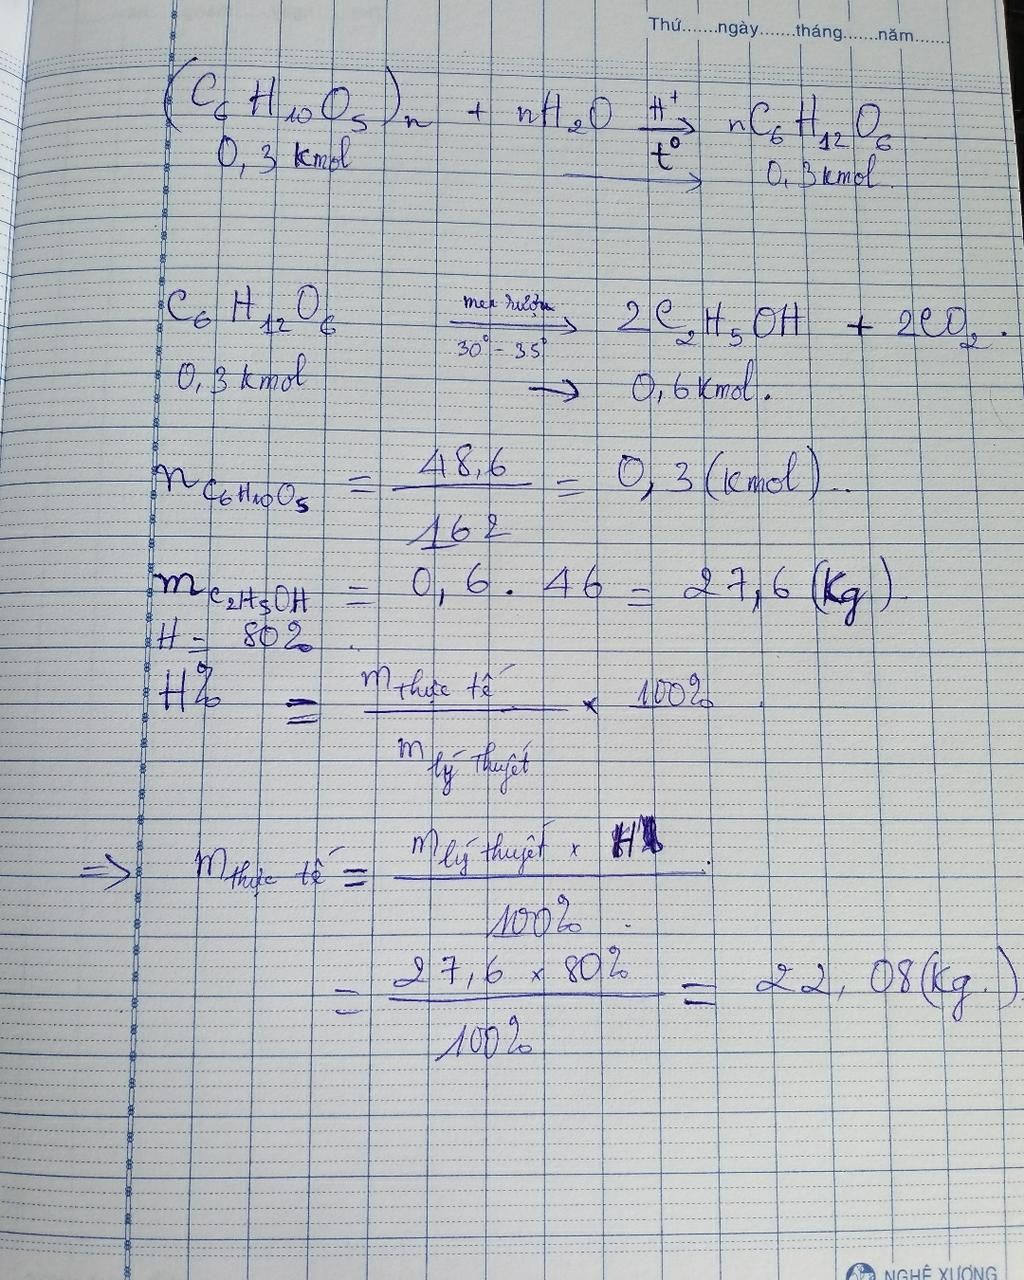 Thứ.......ngày.......tháng.......năm.......
(C₆H₁₀O₅)ₙ + nH₂O H⁺ → t° nC₆H₁₂O₆
0,3 kmol → 0,3 kmol.
C₆H₁₂O₆ men rượu → 30° - 35° 2C₂H₅OH + 2CO₂.
0,3 kmol → 0,6 kmol.
n C₆H₁₀O₅ = 48,6 / 162 = 0,3 (kmol)..
m C₂H₅OH = 0,6 . 46 = 27,6 (kg).
H = 80% .
H% = m thực tế / m lý thuyết × 100% .
=> m thực tế = m lý thuyết × H / 100% .
= 27,6 × 80% / 100% = 22,08 (kg.)
NGHÊ XƯƠNG